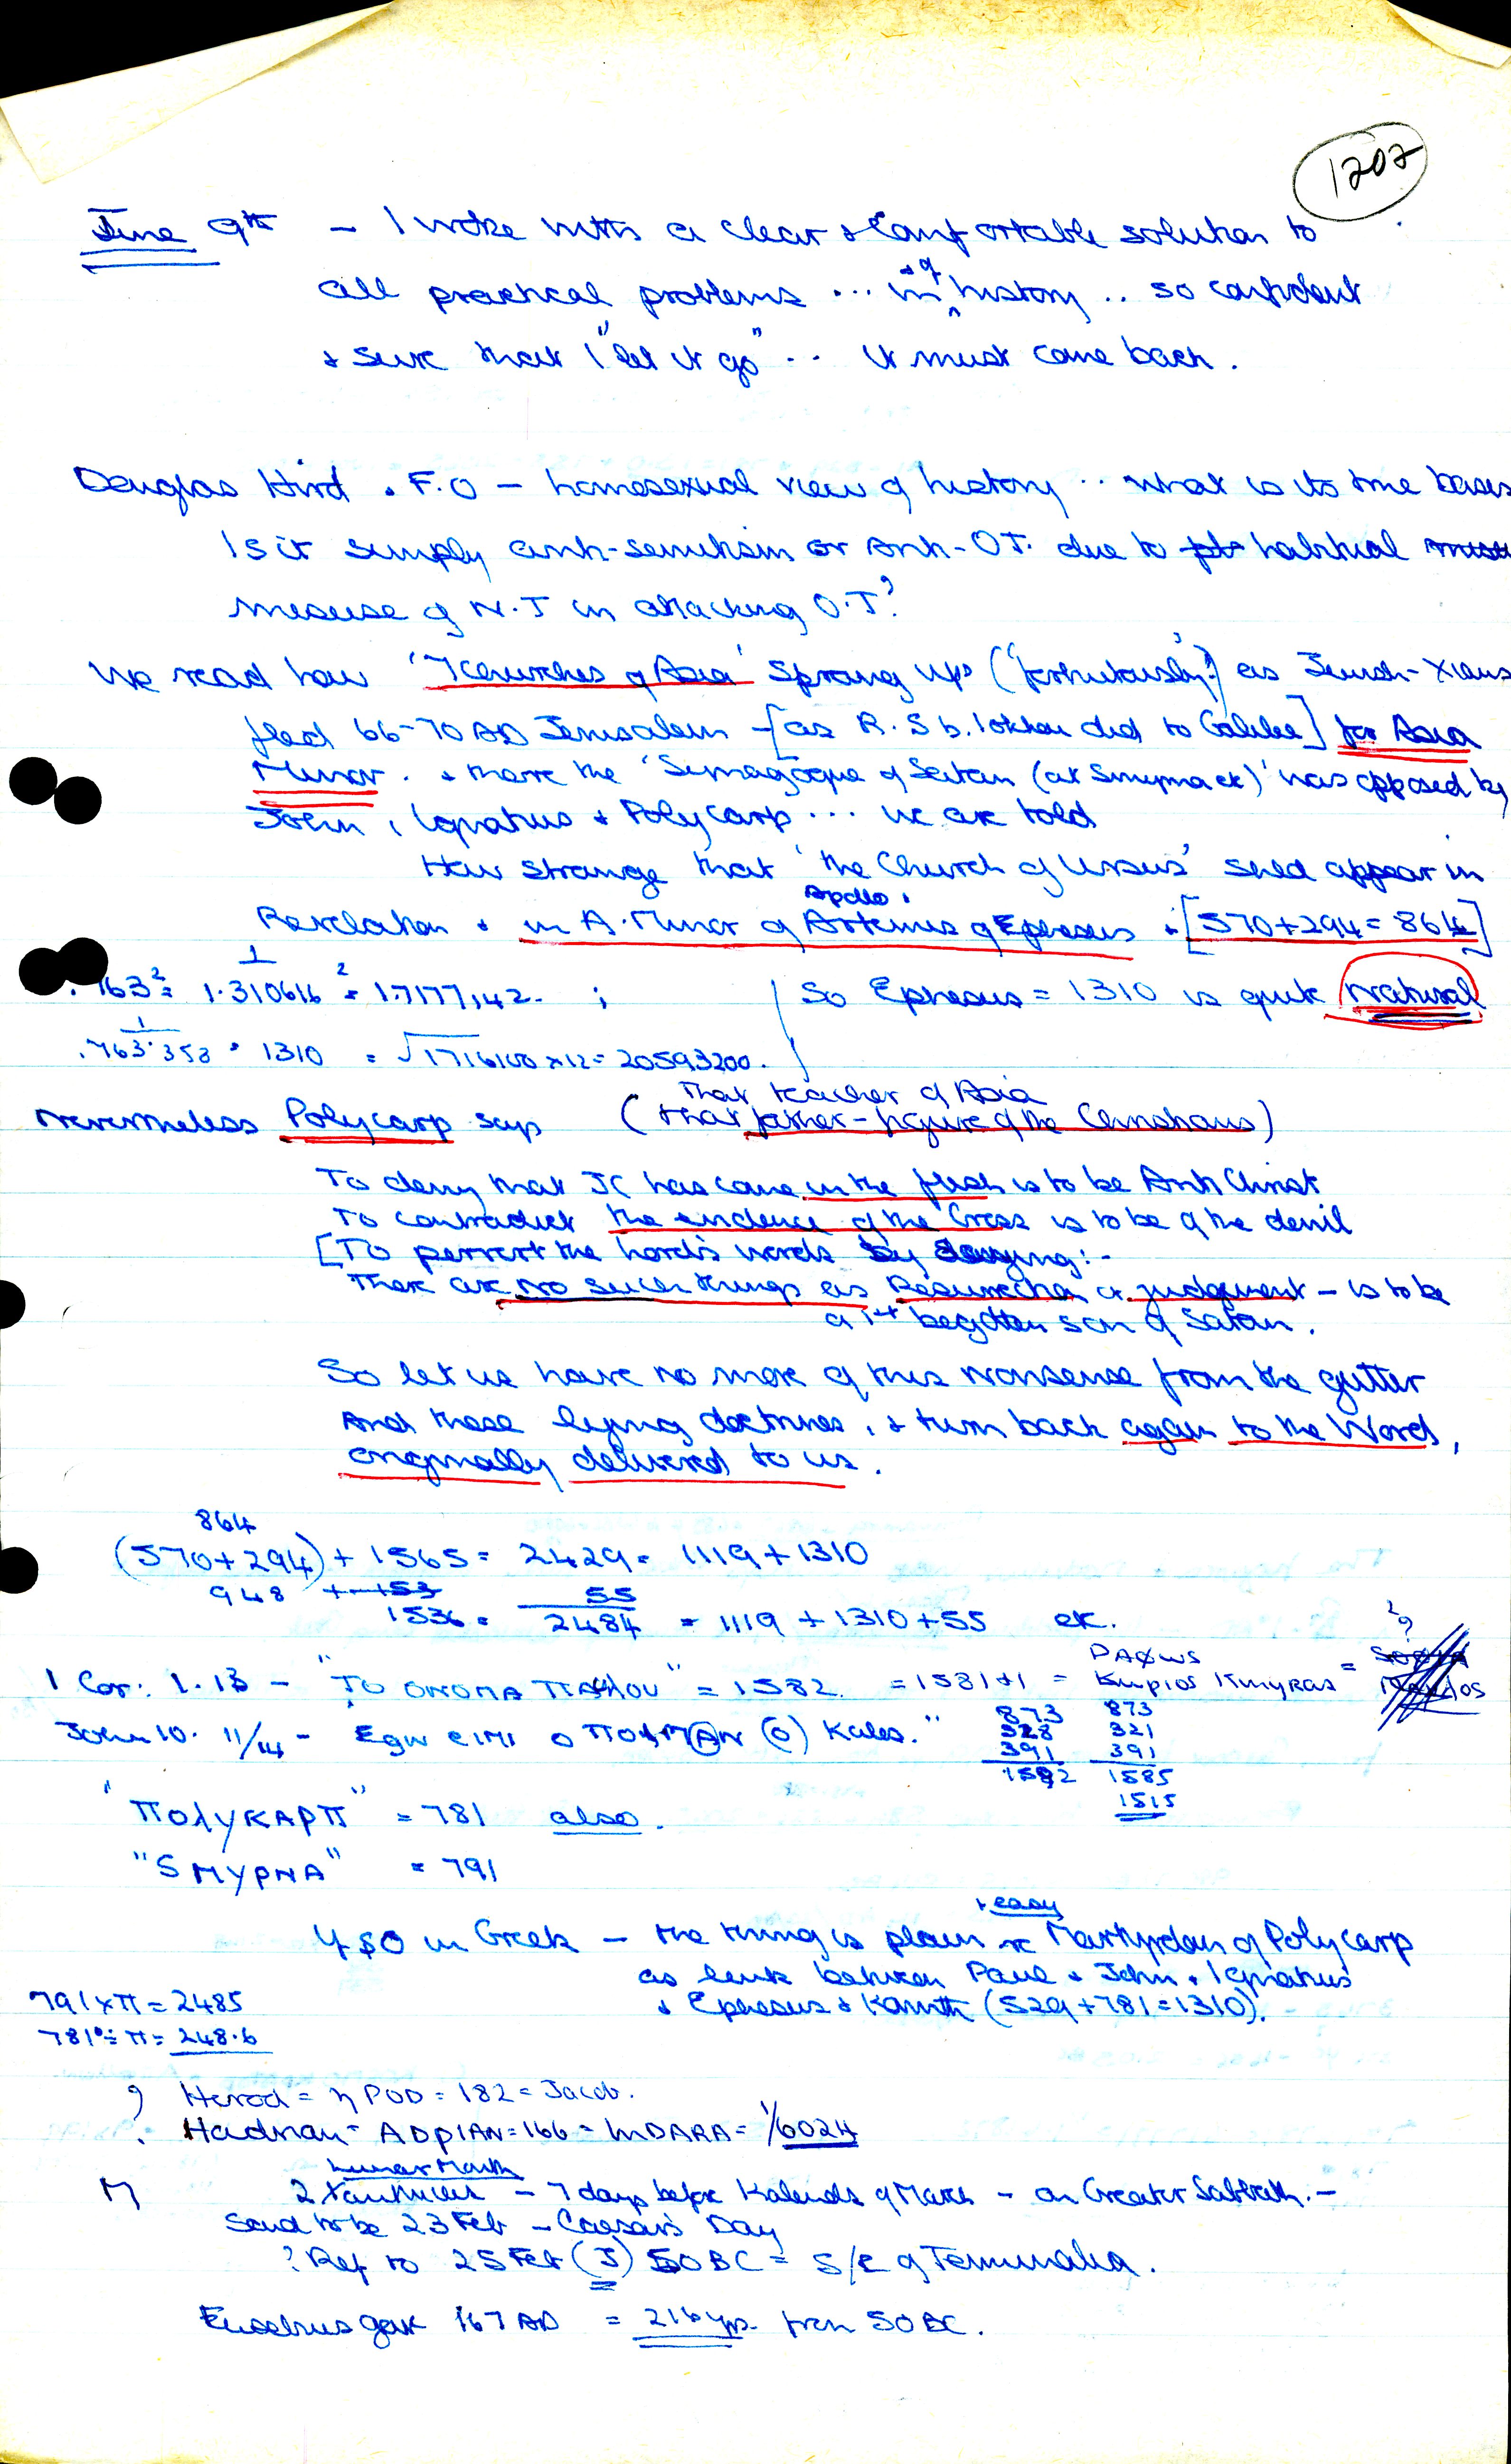 1202
June 9th – I woke with a clear & comfortable solution to
all practical problems ... in & of history .. so confident
& sure that I "let it go" ... it must come back.
Douglas Hurd . F.O – homosexual view of history .. what is its true basis
Is it simply anti-semitism or Anti-O.T. due to habitual
misuse of N.T in attacking O.T?
We read how '7 Churches of Asia' sprang up ('fortuitously'?) as Jewish-Xians
fled 66-70 AD Jerusalem – [as R. S b. Iokhai did to Galilee] for Asia
Minor. & there the 'Synagogue of Satan (at Smyrna et)' was opposed by
John, Ignatius & Polycarp ... we are told
How strange that 'the Church of Ursus' shld appear in
Revelation & in A. Minor of Apollo. Artemis of Ephesus . [570+294=864]
.763² = 1.310616² = 1.7177,142. ;
So Ephesus = 1310 is quite natural
1/.763.358 = 1310 = √1716100 x 12 = 20593200.
Nevertheless Polycarp says (that father-figure of the Christians)
That teacher of Asia
To deny that JC has come in the flesh is to be Anti Christ
To contradict the evidence of the Cross is to be of the devil
[To pervert the Lord's words by saying:-
There are no such things as Resurrection or judgment – is to be
a 1st begotten son of Satan.
So let us have no more of this nonsense from the gutter
And these lying doctrines, & turn back again to the Word,
originally delivered to us.
864
(570+294) + 1565 = 2429 = 1119 + 1310
948 + 153 55
1536 = 2484 = 1119 + 1310 + 55 etc.
1 Cor: 1.13 – "TO ONOMA ΠΑΥλου" = 1582 = 1581+1 = DAΦWS Kuριos Kinyras = ?
John 10. 11/14 – Egw eimi o ΠΟΙΜΑN (o) Kalos."
873 873
328 321
391 391
1592 1585
1515
"ΠΟλyKAPΠ" = 781 also.
"SMYPNA" = 791
If SO in Greek – the thing is plain & easy re Martyrdom of Polycarp
as link between Paul & John & Ignatius
& Ephesus & Korinth (529+781=1310).
791 x π = 2485
781 ÷ π = 248.6
? Herod = ηPOD = 182 = Jacob.
Hadrian = ADPIAN = 166 = INDARA = 1/6024
Lunar Month
M 2 Xanthicus – 7 days before Kalends of March – on Greater Sabbath. –
Said to be 23 Feb – Caesar's Day
? Ref to 25 Feb (J) 50 BC = S/E of Terminalia.
Eusebius gave 167 AD = 216 yrs from 50 BC.